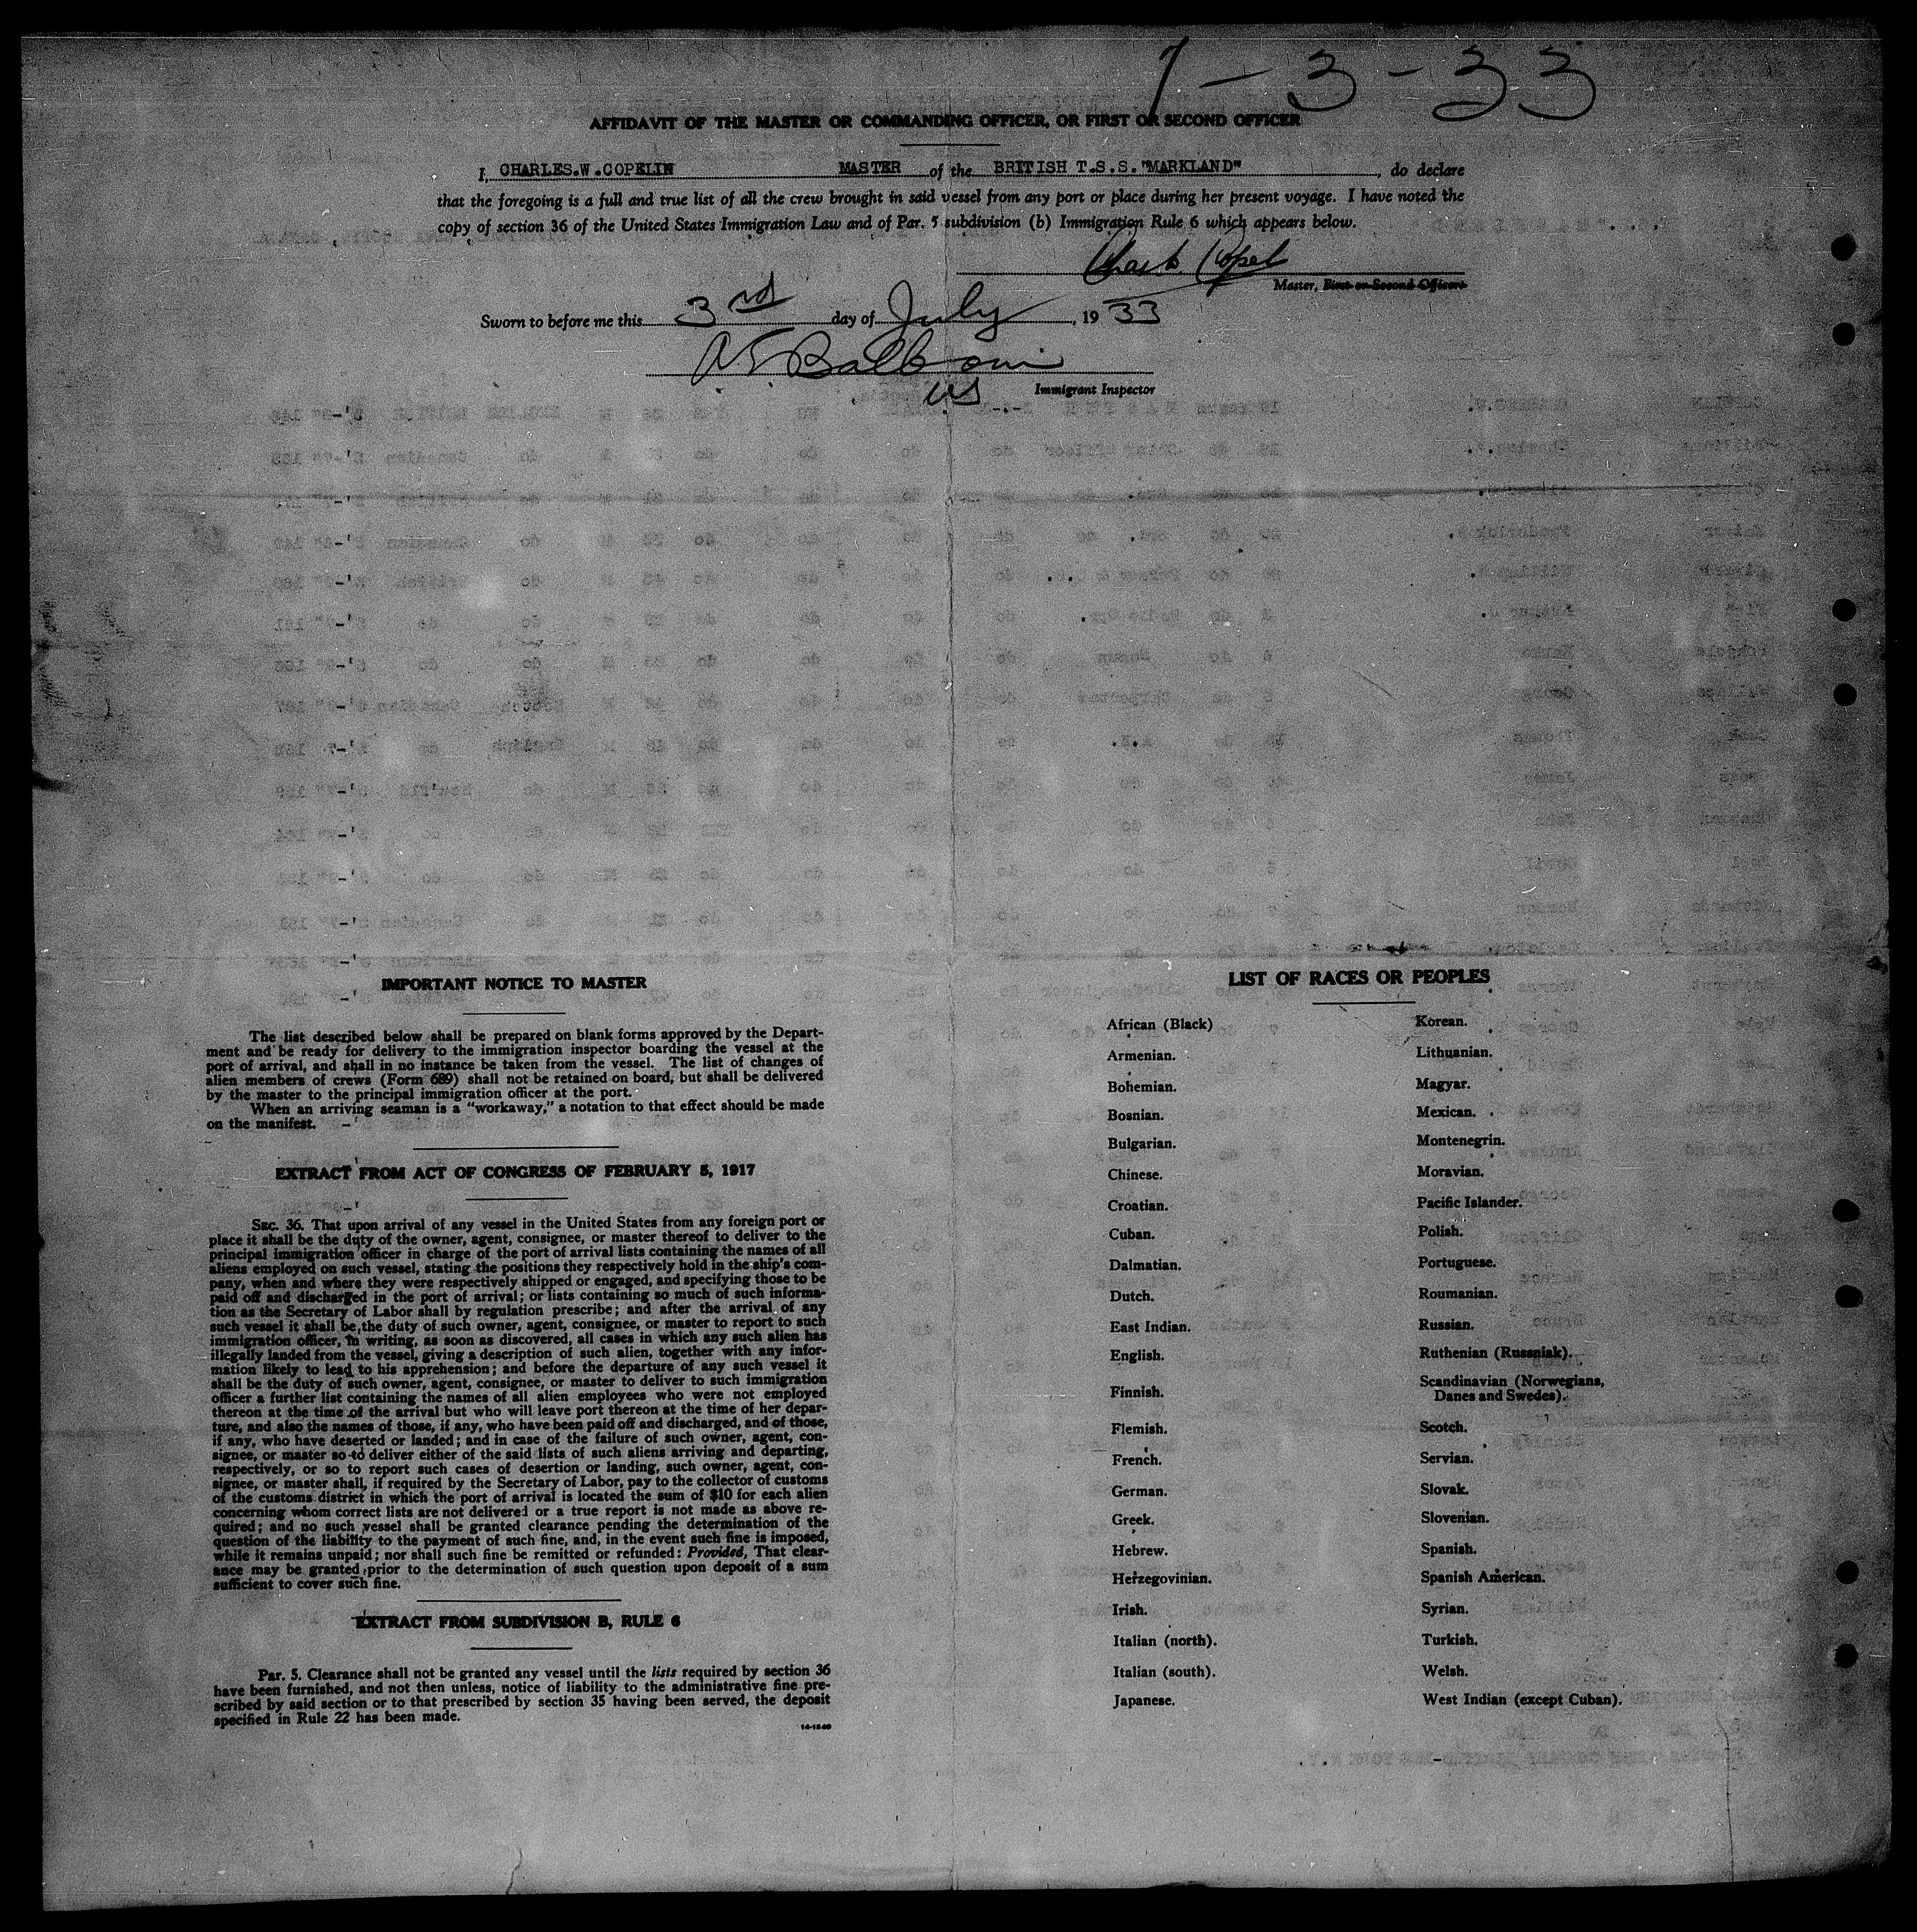 7-3-33
AFFIDAVIT OF THE MASTER OR COMMANDING OFFICER, OR FIRST OR SECOND OFFICER
I, CHARLES.W.COPELIN MASTER of the BRITISH T.S.S. "MARKLAND", do declare
that the foregoing is a full and true list of all the crew brought in said vessel from any port or place during her present voyage. I have noted the
copy of section 36 of the United States Immigration Law and of Par. 5 subdivision (b) Immigration Rule 6 which appears below.
Master, First or Second Officer.
Sworn to before me this 3rd day of July, 1933
Immigrant Inspector
IMPORTANT NOTICE TO MASTER
The list described below shall be prepared on blank forms approved by the Depart-
ment and be ready for delivery to the immigration inspector boarding the vessel at the
port of arrival, and shall in no instance be taken from the vessel. The list of changes of
alien members of crews (Form 689) shall not be retained on board, but shall be delivered
by the master to the principal immigration officer at the port.
When an arriving seaman is a "workaway," a notation to that effect should be made
on the manifest.
EXTRACT FROM ACT OF CONGRESS OF FEBRUARY 5, 1917
SEC. 36. That upon arrival of any vessel in the United States from any foreign port or
place it shall be the duty of the owner, agent, consignee, or master thereof to deliver to the
principal immigration officer in charge of the port of arrival lists containing the names of all
aliens employed on such vessel, stating the positions they respectively hold in the ship's com-
pany, when and where they were respectively shipped or engaged, and specifying those to be
paid off and discharged in the port of arrival; or lists containing so much of such informa-
tion as the Secretary of Labor shall by regulation prescribe; and after the arrival of any
such vessel it shall be the duty of such owner, agent, consignee, or master to report to such
immigration officer, in writing, as soon as discovered, all cases in which any such alien has
illegally landed from the vessel, giving a description of such alien, together with any infor-
mation likely to lead to his apprehension; and before the departure of any such vessel it
shall be the duty of such owner, agent, consignee, or master to deliver to such immigration
officer a further list containing the names of all alien employees who were not employed
thereon at the time of the arrival but who will leave port thereon at the time of her depar-
ture, and also the names of those, if any, who have been paid off and discharged, and of those,
if any, who have deserted or landed; and in case of the failure of such owner, agent, con-
signee, or master so to deliver either of the said lists of such aliens arriving and departing,
respectively, or so to report such cases of desertion or landing, such owner, agent, con-
signee, or master shall, if required by the Secretary of Labor, pay to the collector of customs
of the customs district in which the port of arrival is located the sum of $10 for each alien
concerning whom correct lists are not delivered or a true report is not made as above re-
quired; and no such vessel shall be granted clearance pending the determination of the
question of the liability to the payment of such fine, and, in the event such fine is imposed,
while it remains unpaid; nor shall such fine be remitted or refunded: Provided, That clear-
ance may be granted prior to the determination of such question upon deposit of a sum
sufficient to cover such fine.
EXTRACT FROM SUBDIVISION B, RULE 6
Par. 5. Clearance shall not be granted any vessel until the lists required by section 36
have been furnished, and not then unless, notice of liability to the administrative fine pre-
scribed by said section or to that prescribed by section 35 having been served, the deposit
specified in Rule 22 has been made.
LIST OF RACES OR PEOPLES
African (Black)
Armenian.
Bohemian.
Bosnian.
Bulgarian.
Chinese.
Croatian.
Cuban.
Dalmatian.
Dutch.
East Indian.
English.
Finnish.
Flemish.
French.
German.
Greek.
Hebrew.
Herzegovinian.
Irish.
Italian (north).
Italian (south).
Japanese.
Korean.
Lithuanian.
Magyar.
Mexican.
Montenegrin.
Moravian.
Pacific Islander.
Polish.
Portuguese.
Roumanian.
Russian.
Ruthenian (Russniak).
Scandinavian (Norwegians,
Danes and Swedes).
Scotch.
Servian.
Slovak.
Slovenian.
Spanish.
Spanish American.
Syrian.
Turkish.
Welsh.
West Indian (except Cuban).